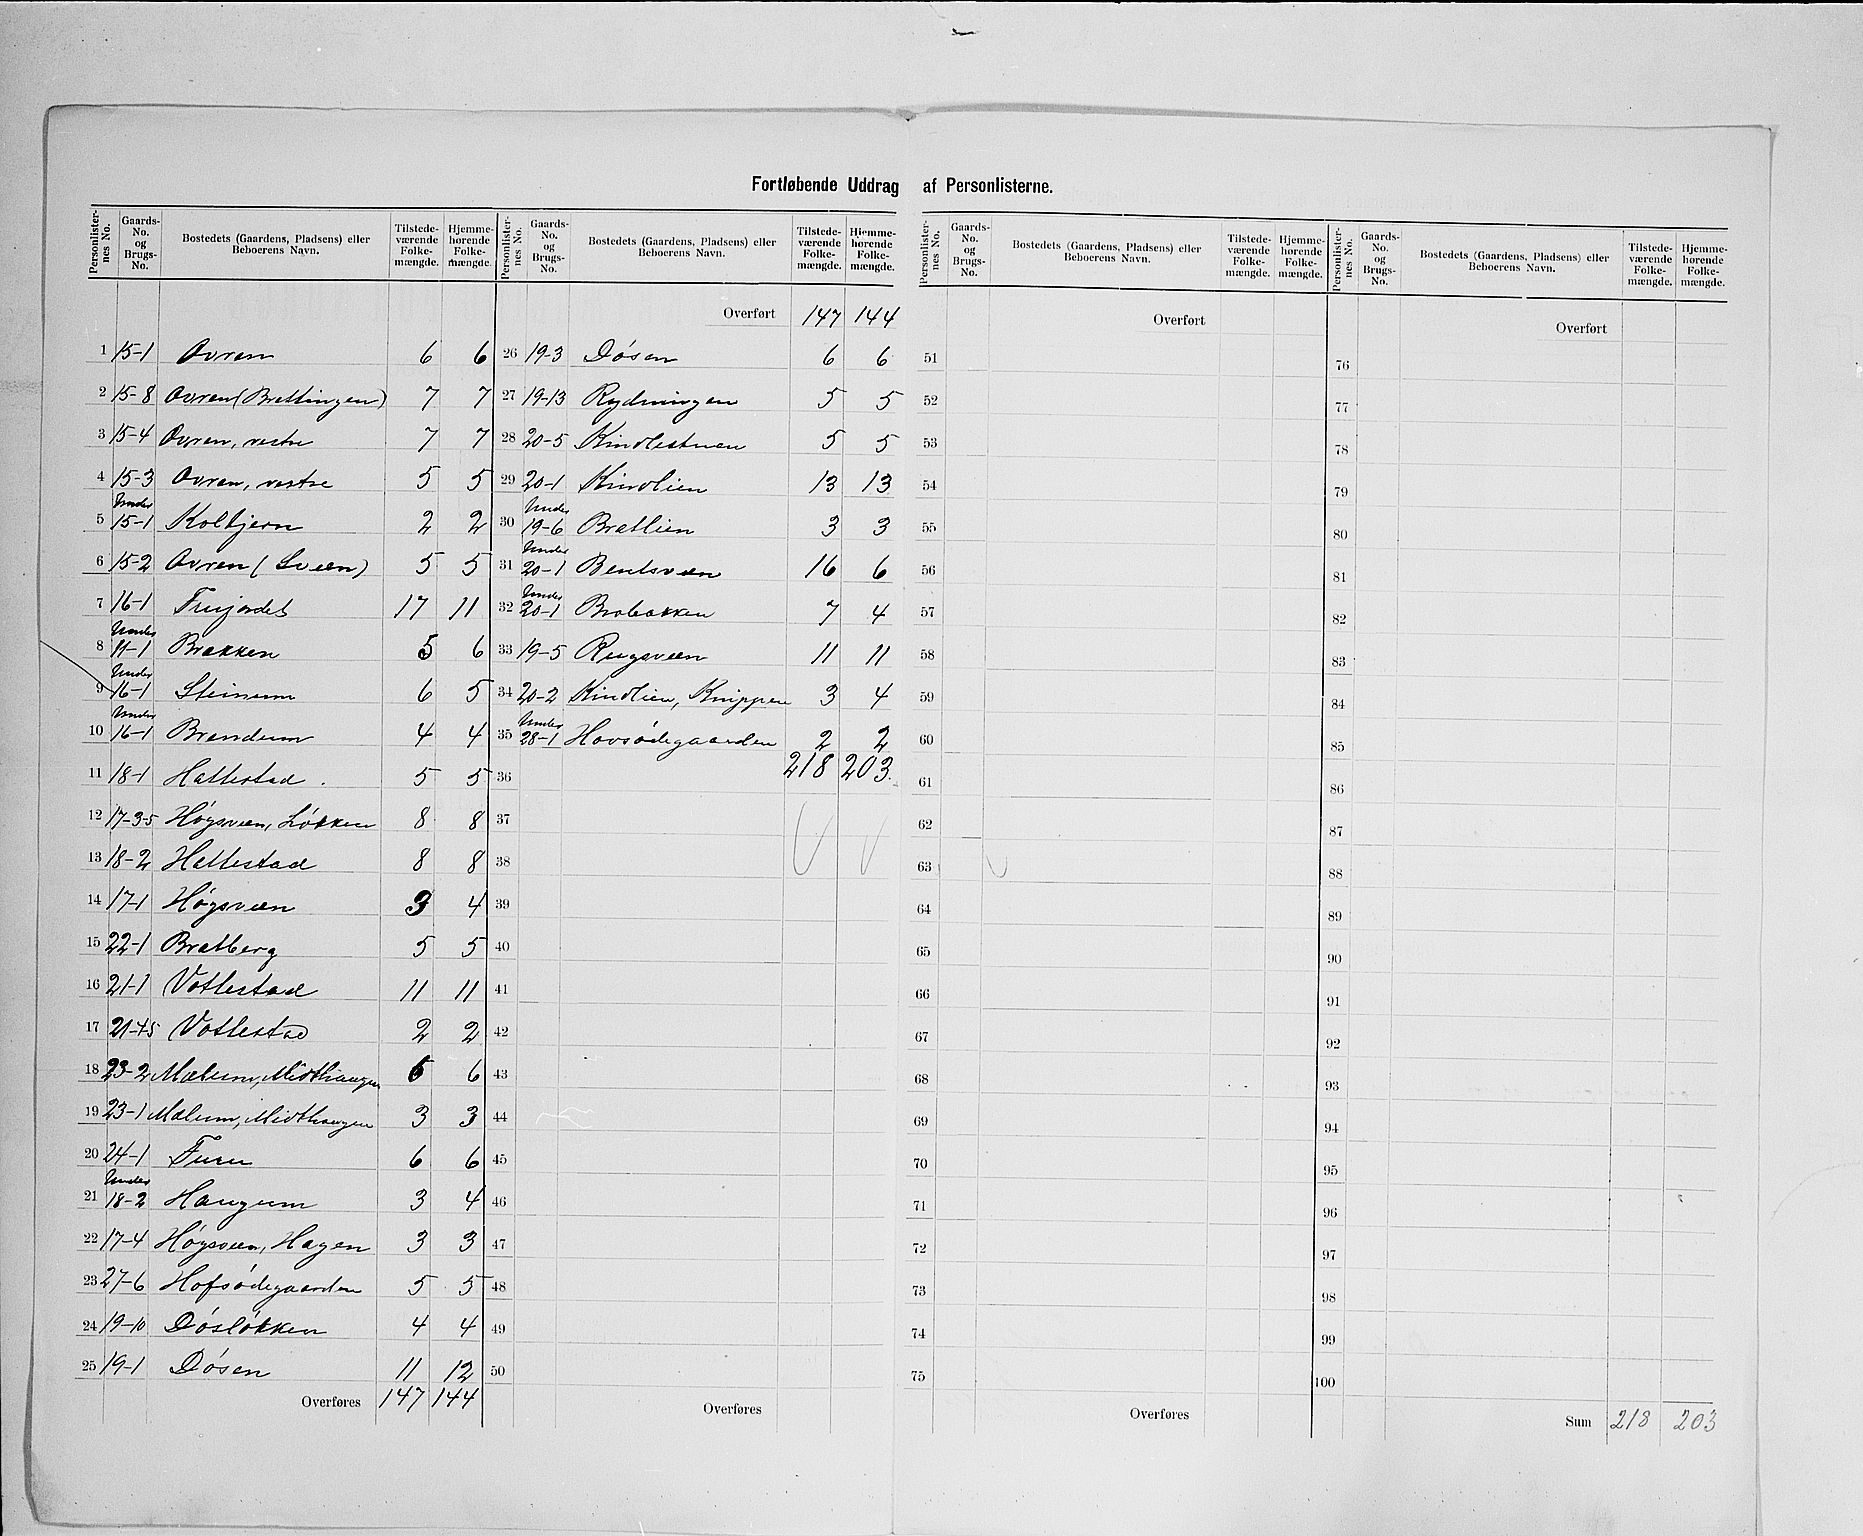 Fortløbende Uddrag af Personlisterne.
Personlister-nes No. Gaards-No. og Brugs-No. Bostedets (Gaardens, Pladsens) eller Beboerens Navn. Tilstede-værende Folke-mængde. Hjemme-hørende Folke-mængde.
1 15-1 Ovren 6 6
2 15-8 Ovren (Brattingen) 7 7
3 15-4 Ovren, vestre 7 7
4 15-3 Ovren, vestre 5 5
5 Under 15-1 Kolbjørn 2 2
6 15-2 Ovren (Sveen) 5 5
7 16-1 17 11
8 Under 11-1 Brækken 5 6
9 Under 16-1 Steinum 6 5
10 Under 16-1 Brendum 4 4
11 18-1 Hallestad. 5 5
12 17-3-5 Høgsveen, Løkken 8 8
13 18-2 Hallestad 8 8
14 17-1 Høgsveen 3 4
15 22-1 Bratberg 5 5
16 21-1 Vollestad 11 11
17 21-4-5 Vollestad 2 2
18 23-2 Mælum, Midthaugen 6 6
19 23-1 Mælum, Midthaugen 3 3
20 24-1 Furu 6 6
21 Under 18-2 Haugum 3 4
22 17-4 Høgsveen, Hagen 3 3
23 27-6 Hofsødegaarden 5 5
24 19-10 Døsløkken 4 4
25 19-1 Døsen 11 12
Overføres 147 144
Personlister-nes No. Gaards-No. og Brugs-No. Bostedets (Gaardens, Pladsens) eller Beboerens Navn. Tilstede-værende Folke-mængde. Hjemme-hørende Folke-mængde.
Overført 147 144
26 19-3 Døsen 6 6
27 19-13 Rydningen 5 5
28 20-5 Kindlistuen 5 5
29 20-1 Kindlien 13 13
30 Under 19-6 Bratlien 3 3
31 Under 20-1 Bentsveen 16 6
32 Under 20-1 Brobakken 7 4
33 19-5 Rugsveen 11 11
34 20-2 Kindlien, Knippen 3 4
35 Under 28-1 Hovsødegaarden 2 2
36 218 203.
37
38
39
40
41
42
43
44
45
46
47
48
49
50
Overføres
Personlister-nes No. Gaards-No. og Brugs-No. Bostedets (Gaardens, Pladsens) eller Beboerens Navn. Tilstede-værende Folke-mængde. Hjemme-hørende Folke-mængde.
Overført
51
52
53
54
55
56
57
58
59
60
61
62
63
64
65
66
67
68
69
70
71
72
73
74
75
Overføres
Personlister-nes No. Gaards-No. og Brugs-No. Bostedets (Gaardens, Pladsens) eller Beboerens Navn. Tilstede-værende Folke-mængde. Hjemme-hørende Folke-mængde.
Overført
76
77
78
79
80
81
82
83
84
85
86
87
88
89
90
91
92
93
94
95
96
97
98
99
100
Sum 218 203